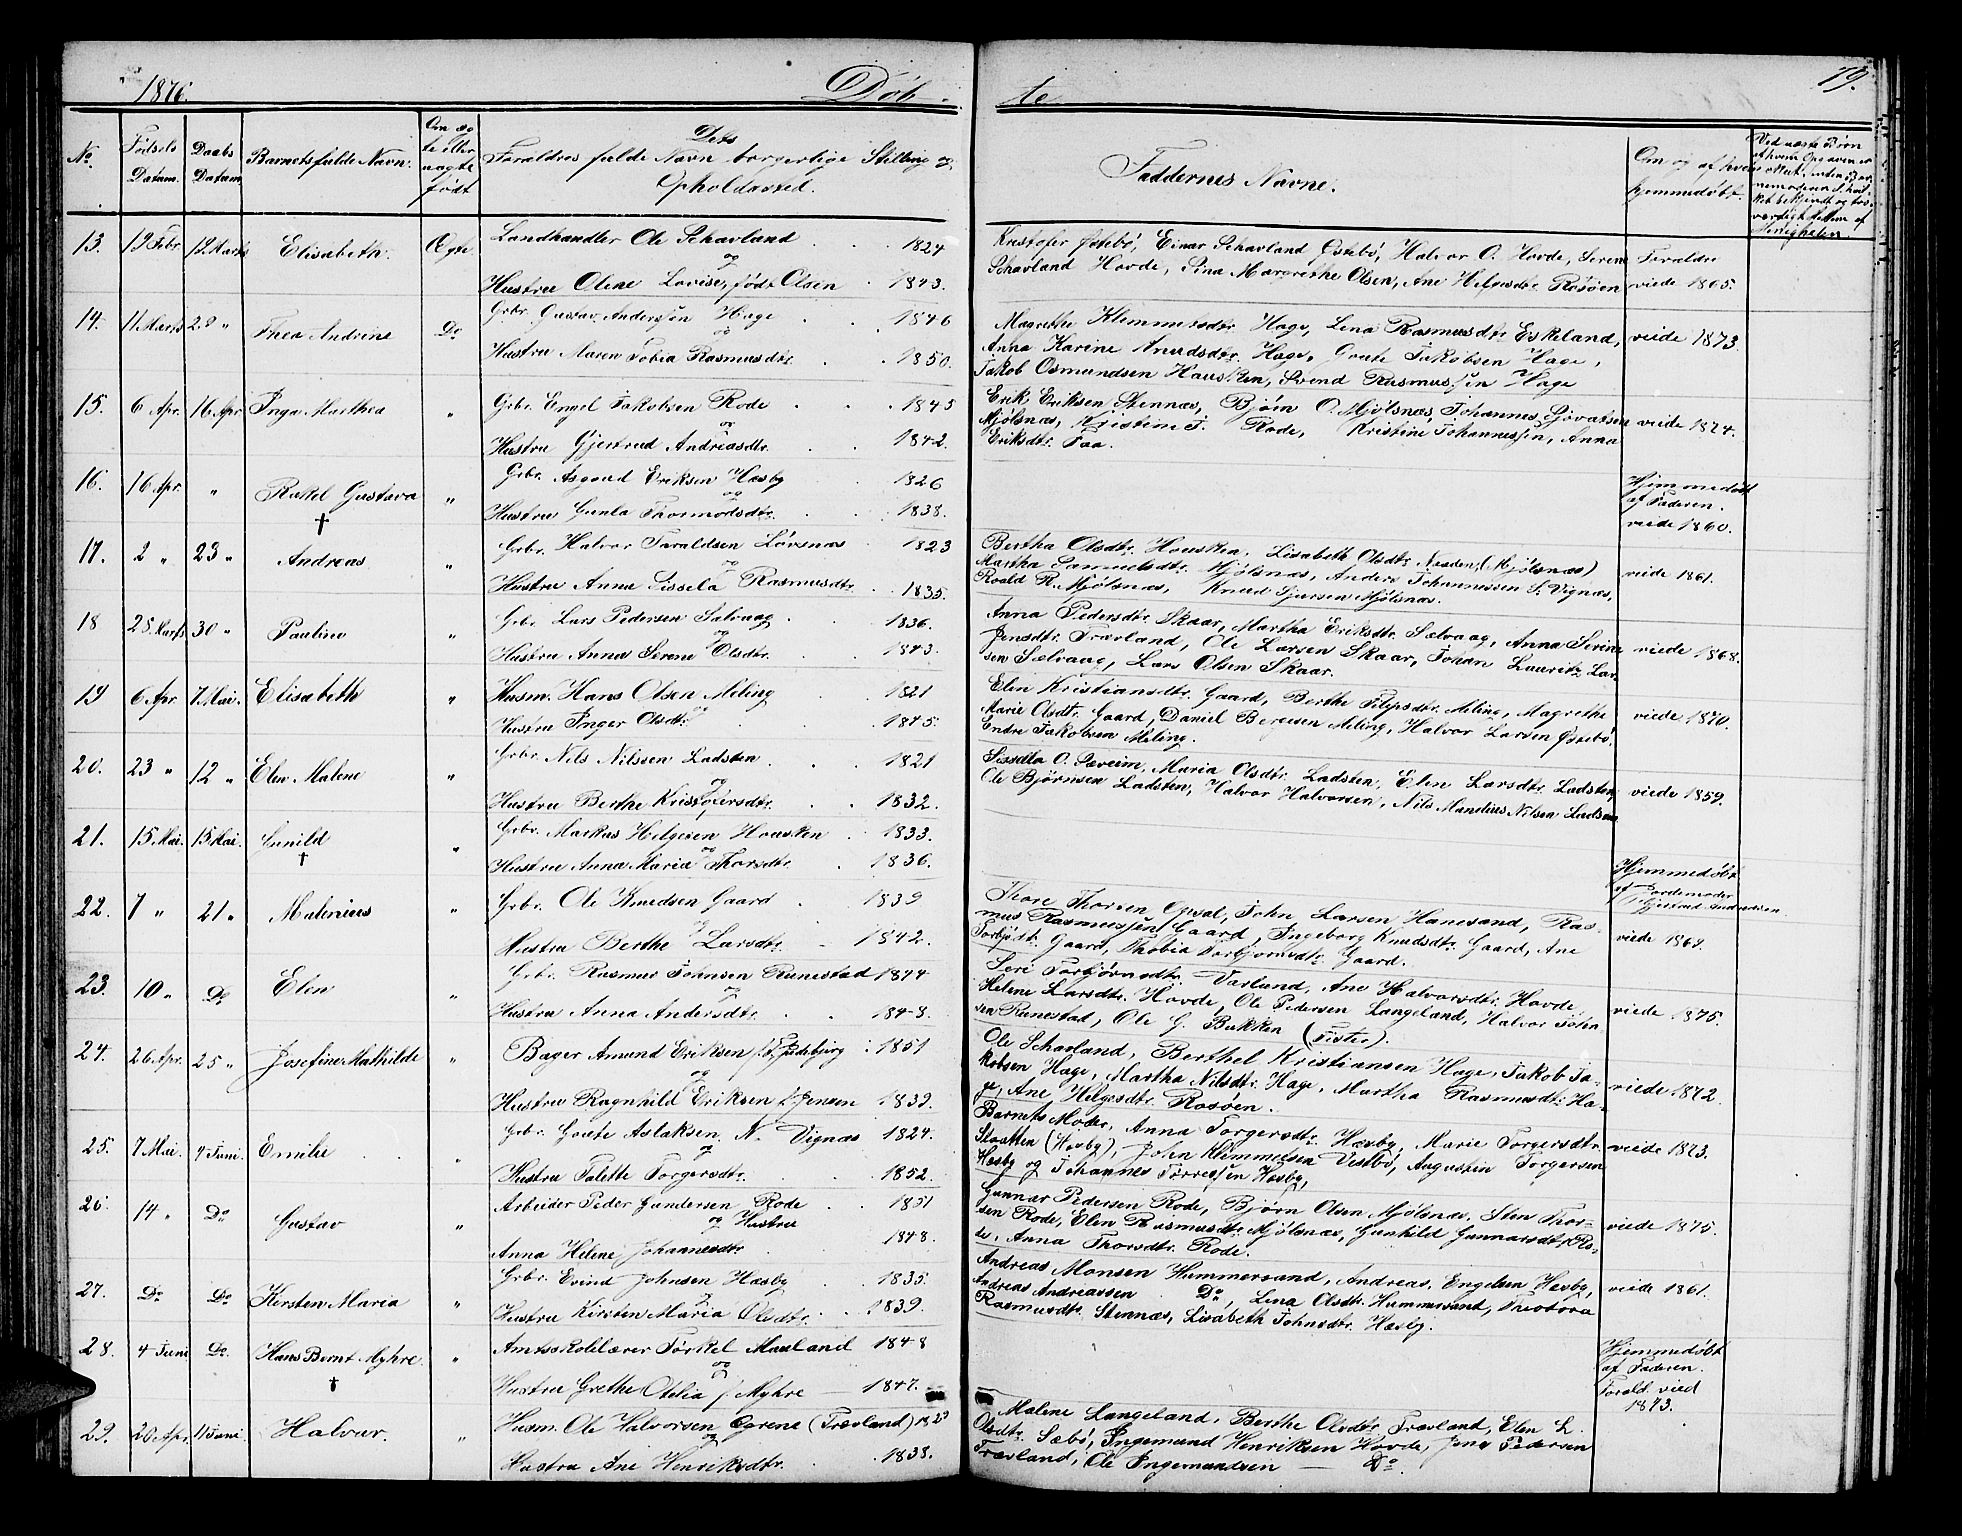 1876. Døb- te 79.
No. Fødsels Datum. Daabs Datum Barnets fulde Navn. Om ægte eller uægte født Dets Forældres fulde Navn borgerlige Stilling og Opholdssted. Faddernes Navne. Om og af hvem hjemmedøbt.
13. 19 Febr. 12 Marts Elisabeth. Ægte Landhandler Ole Schavland 1824 Kristofer Østebø, Einar Schavland Østebø, Halvor O. Hovde, Seren Forældre
og
Hustru Olene Lovise, født Olsen 1843. Schavland Hovde, Sina Margrethe Olsen, Ane Helgesdtr. Rosøen viede 1865.
14. 11 Marts 28 " Thea Andrine Do Grbr. Gustav Anderssen Hage 1846 Magrethe Klemmetsdtr. Hage, Lena Rasmusdtr. Eskeland, viede 1873.
og
Hustru Maren Tobia Rasmusdtr. 1850. Anna Karine Knudsdtr. Hage, Goute Jakobsen Hage,
Jakob Osmundsen Hausken, Svend Rasmussen Hage
15. 6 Apr. 16 Apr Inga Marthea " Grbr. Engel Jakobsen Rode 1845 Erik Eriksen Stennæs, Bjørn O. Mjølsnæs, Johannes Sjovatsen viede 1874.
og
Hustru Gjertrud Andreasdtr. 1842. Mjølsnæs, Kristine J. Rode, Kristine Johannessen, Anna
Eriksdtr. Faa.
16. 16 Apr. " Rakel Gustava " Grbr. Asgaud Eriksen Hæsby 1826 Hjemmedøbt
og af Faderen.
† Hustru Gunla Thormodsdtr. 1838. viede 1860.
17. 2 " 23 " Andreas " Grbr. Halvor Taraldsen Løvsnæs 1823 Bertha Olsdtr. Housken, Lisabeth Olsdtr. Nesden, (Mjølsnæs)
og
Hustru Anne Sissela Rasmusdtr. 1835. Martha Samuelsdtr. Mjølsnæs, Anders Johannessen S. Vignæs, viede 1861.
Roald R. Mjølsnæs, Knud Tjersen Mjølsnæs.
18 25. Marts 30 " Pauline " Grbr. Lars Pedersen Salvaag 1836. Anna Pedersdtr. Skaar, Martha Eriksdtr. Sælvaag, Anna Serine
og
Hustru Anna Serene Olsdtr. 1843. Jensdtr. Trævland, Ole Larsen Skaar, Johan Lauritz Lar- viede 1868.
sen Sælvaag, Lars Olsen Skaar.
19 6 Apr. 7 Mai. Elisabeth " Husm. Hans Olsen Meling 1821 Elen Kristiansdtr. Gaard, Berthe Filipsdtr. Meling, Magrethe
og
Hustru Inger Olsdtr. 1845. Marie Olsdtr. Gaard, Daniel Bergesen Meling, Halvor Larsen Østebø, viede 1870.
Endre Jakobsen Meling.
20. 23 " 12 " Elen Malene " Grbr. Nils Nilssen Ladsten 1821 Sissella O. Særeim, Maria Olsdtr. Ladsten, Elen Larsdtr. Ladsten,
og
Hustru Berthe Kristofersdtr. 1832. Ole Bjørnsen Ladsten, Halvor Halvorsen, Nils Mandius Nilsen Ladsten viede 1859.
21. 15 Mai. 15 Mai. Gunild " Grbr. Markus Helgesen Housken 1833.
og
† Hustru Anna Maria Thorsdtr. 1836. Hjemmedøbt
af Jordemoder
Gjertrud Andreassen
22. 7 " 21 " Malenius " Grbr. Ole Knudsen Gaard 1839 Thore Thorsen Opsal, John Larsen Hanesand, Ras-
og
Hustru Berthe Larsdtr. 1842. mus Rasmussen Gaard, Ingeborg Knudsdtr. Gaard, Ane viede 1864.
Torbjørsdtr. Gaard, Thobia Torbjørnsdtr. Gaard.
23. 10 " Do Elen " Grbr. Rasmus Johnsen Runestad 1844 Seri Torbjørnsdtr. Varlund, Ane Halvorsdtr. Hovde,
og
Hustru Anna Andersdtr. 1848. Helene Larsdtr. Hovde, Ole Pedersen Langeland, Halvor John- viede 1875.
sen Runestad, Ole G. Bakken (Fister).
24. 26 Apr. 25 " Josefine Mathilde " Bager Amund Eriksen 1851 Ole Schavland, Berthel Kristiansen Hage, Jakob Ja-
og
Hustru Ragnhild Eriksen f. Jensen 1839. kobsen Hage, Martha Nilsdtr. Hage, Martha Rasmusdtr. Ha- viede 1872.
ge, Ane Helgesdtr. Rosøen.
25. 7 Mai. 4 Juni. Emilie " Grbr. Goute Aslaksen N. Vignæs 1824. Barnets Moder, Anna Torgersdtr. Hæsby, Marie Torgersdtr.
og
Hustru Talette Torgersdtr. 1852. Staatten (Hæsby), John Klemmetsen Vestbø, Augustin Torgersen viede 1873.
Hæsby og Johannes Torressen Hæsby,
26. 14 " Do Gustav " Arbeider Peder Gundersen Rode 1851 Gunnar Pedersen Rode, Bjørn Olsen Mjølsnæs, Sten Thor-
og Hustru
Anna Helene Johannesdtr 1848. sen Rode, Elen Rasmusdtr. Mjølsnæs, Gunhild Gunnarsdtr. Ro- viede 1875.
de, Anna Thorsdtr. Rode.
27. Do Do Kersten Maria " Grbr. Evind Johnsen Hæsby 1835. Andreas Monsen Hummersand, Andreas Engelsen Hæsby,
Hustru Kirsten Maria Olsdtr. 1839. Andreas Andreassen Do, Lina Olsdtr. Hummersand, Theodora viede 1861.
Rasmusdtr. Stennæs, Lisabeth Johnsdtr. Hæsby.
28. 4 Juni Do. Hans Bernt Myhre. " Amtsskolelærer Torkel Mauland 1848 Hjemmedøbt
og af Faderen.
† Hustru Grethe Otelia f. Myhre 1847. Foræld. vied
1873.
29. 20 Apr. 11 Juni. Halvar. " Husm. Ole Halvorsen Ogrene (Trævland) Malene Langeland, Berthe Olsdtr. Trævland, Elen L.
og
Hustru Ane Henriksdtr. 1838. Olsdtr. Sæbø, Ingemund Henriksen Hovde, Jens Pedersen
Trævland, Ole Ingemundsen — Do.